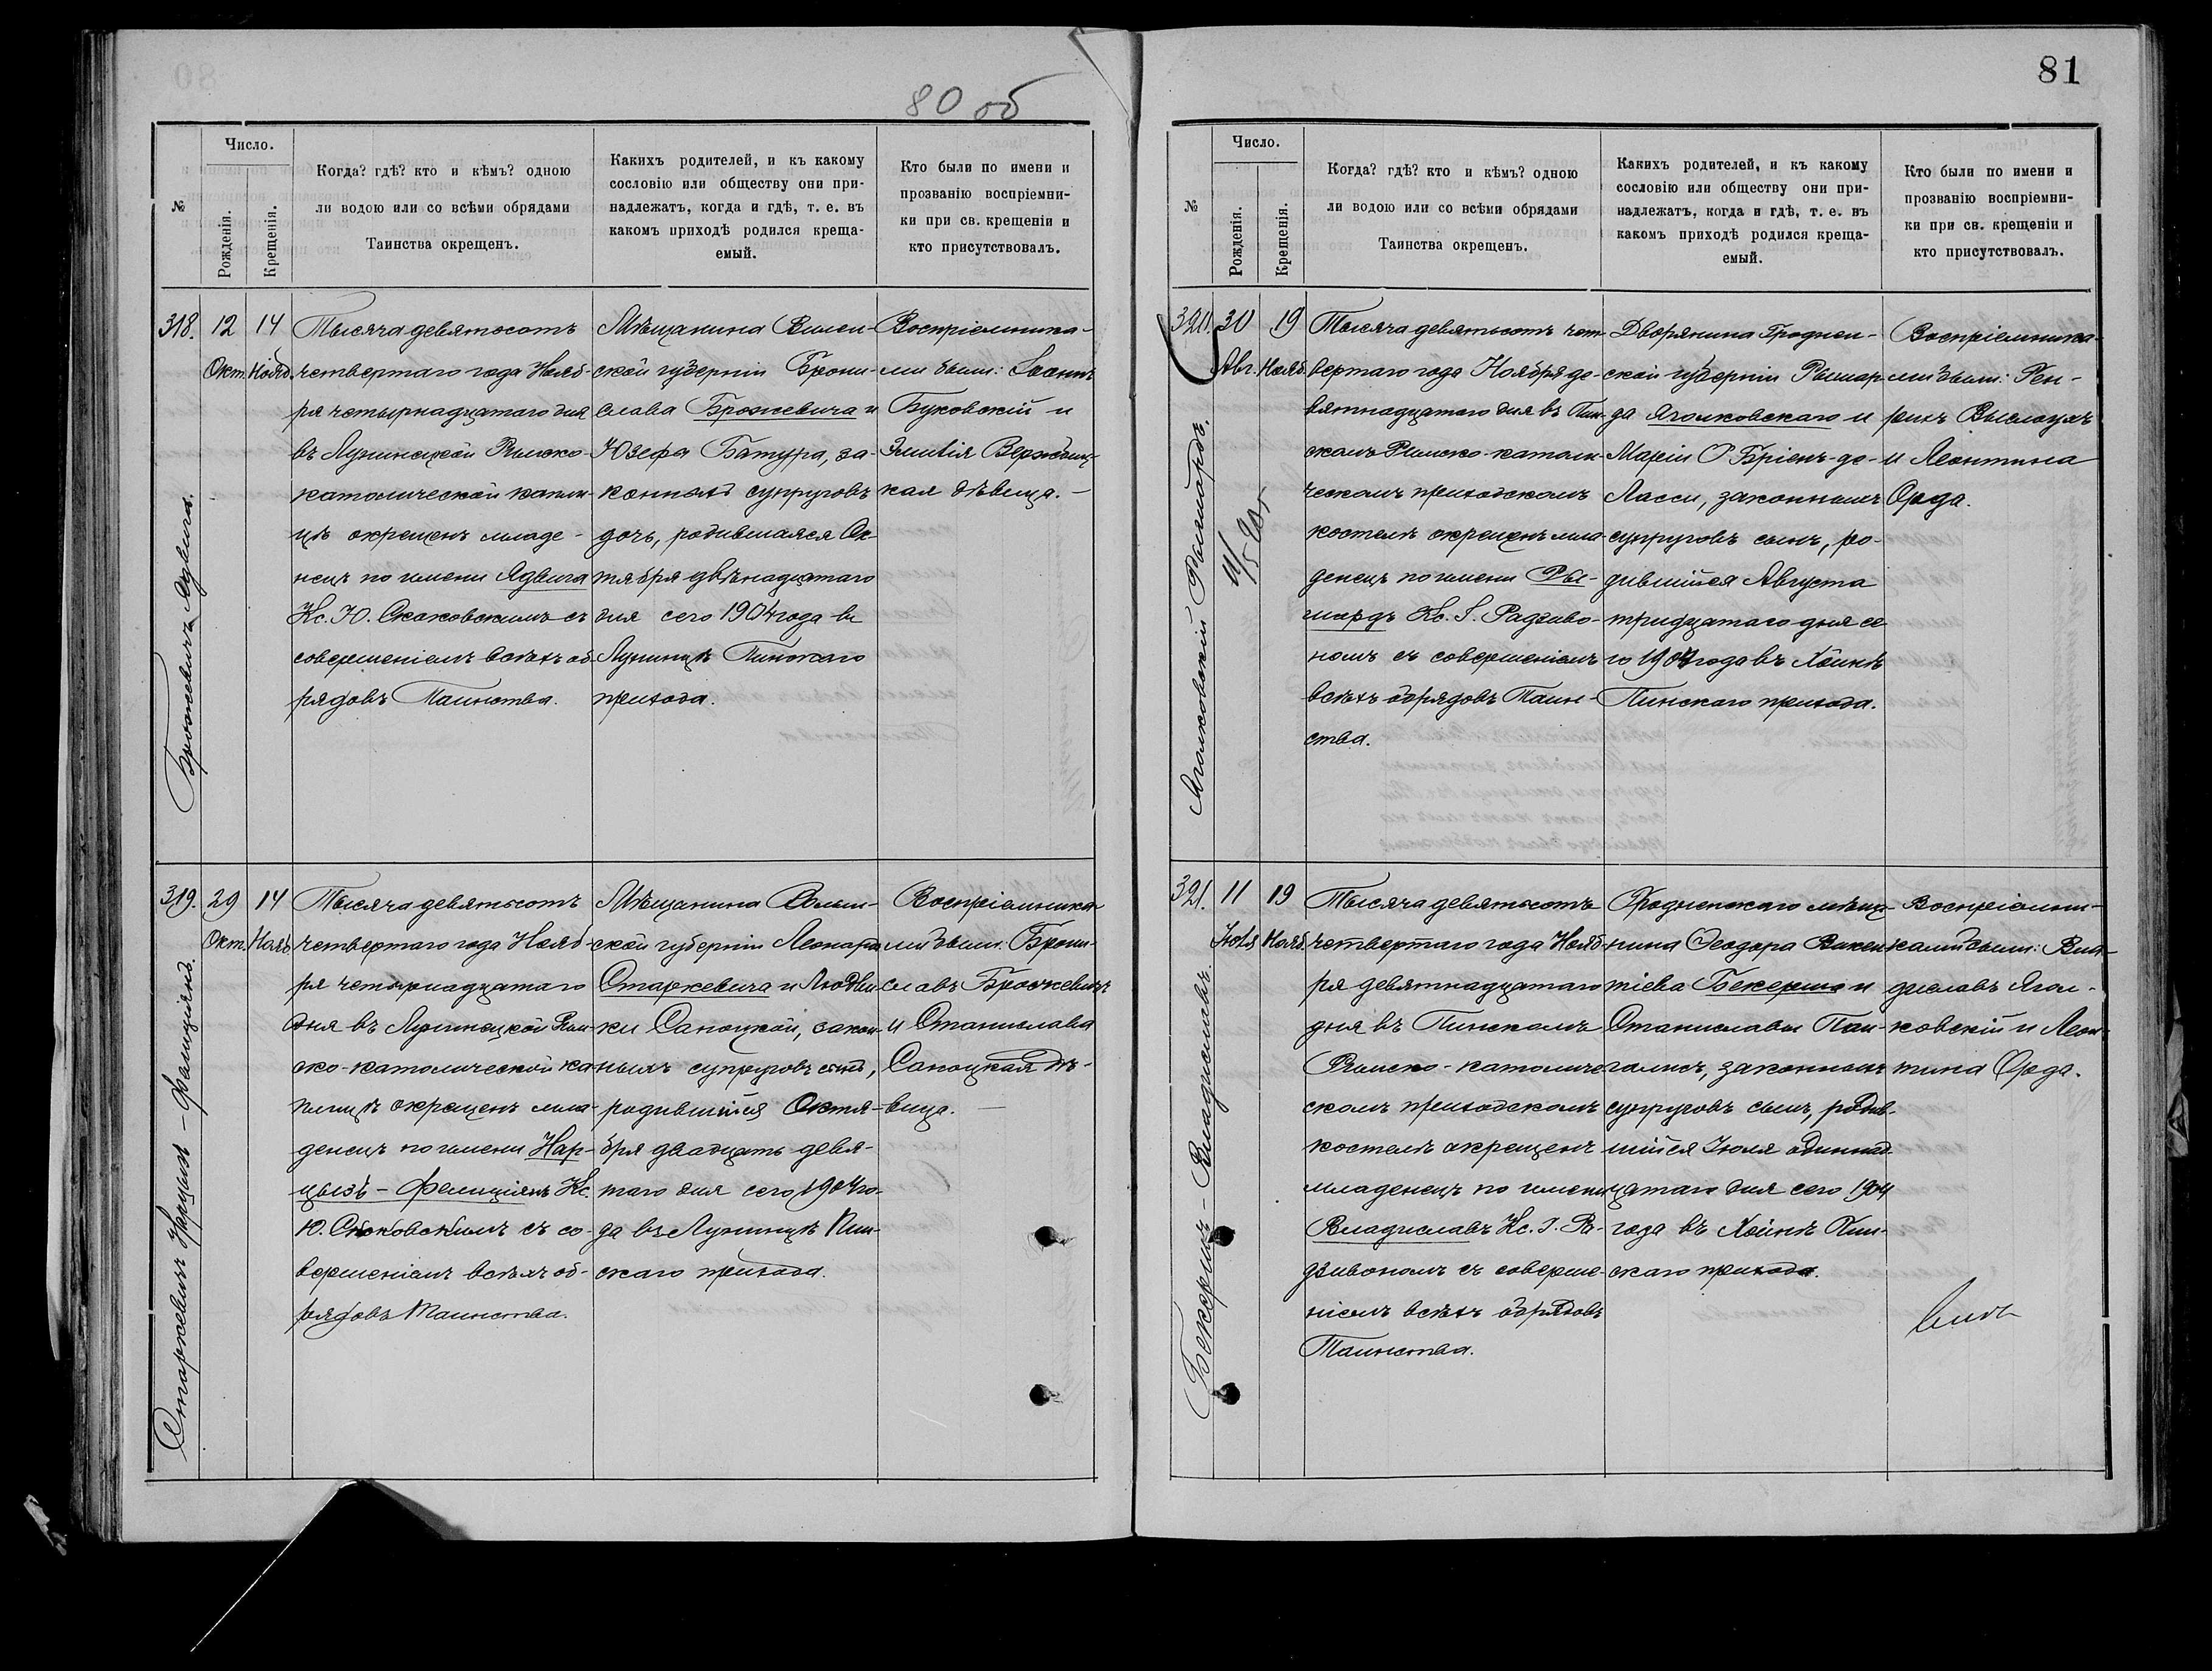 80 об
Число.
№
Рожденія.
Крещенія.
Когда? гдѣ? кто и кѣмъ? одною
ли водою или со всѣми обрядами
Таинства окрещенъ.
Какихъ родителей, и къ какому
сословію или обществу они при-
надлежатъ, когда и гдѣ, т. е. въ
какомъ приходѣ родился креща-
емый.
Кто были по имени и
прозванію воспріемни-
ки при св. крещеніи и
кто присутствовалъ.
318.
Брожевичъ Ядвига.
12
Окт.
14
Нояб.
Тысяча девятьсотъ
четвертаго года Нояб-
ря четырнадцатаго дня
въ Лунинецкой Римско-
католической капли-
цѣ окрещенъ младе-
нецъ по имени Ядвига
Кс. Ю. Скаковскимъ съ
совершеніемъ всѣхъ об-
рядовъ Таинства.
Мѣщанина Вилен-
ской губерніи Брони-
слава Брожевича и
Юзефа Батура, за-
конныхъ супруговъ
дочь, родившаяся Ок-
тября двѣнадцатаго
дня сего 1904 года въ
Лунинцѣ Пинскаго
прихода.
Воспріемника-
ми были: Іоаннъ
Буковскій и
Эмилія
кая дѣвица.
319.
Старжевичъ Нарцызъ - Фелиціянъ.
29
Окт.
14
Нояб.
Тысяча девятьсотъ
четвертаго года Нояб-
ря четырнадцатаго
дня въ Лунинецкой Рим-
ско-католической ка-
плицѣ окрещенъ мла-
денецъ по имени Нар-
цызъ - Фелиціянъ Кс.
Ю. Скаковскимъ съ со-
вершеніемъ всѣхъ об-
рядовъ Таинства.
Мѣщанина Волын-
ской губерніи Леонарда
Старжевича и Людви-
ки Саноцкой, закон-
ныхъ супруговъ сынъ,
родившійся Октя-
бря двадцать девя-
таго дня сего 1904 го-
да въ Лунинцѣ Пин-
скаго прихода.
Воспріемника-
ми были: Брони-
славъ Брожевичъ
и Станислава
Саноцкая дѣ-
вица.
81
Число.
№
Рожденія.
Крещенія.
Когда? гдѣ? кто и кѣмъ? одною
ли водою или со всѣми обрядами
Таинства окрещенъ.
Какихъ родителей, и къ какому
сословію или обществу они при-
надлежатъ, когда и гдѣ, т. е. въ
какомъ приходѣ родился креща-
емый.
Кто были по имени и
прозванію воспріемни-
ки при св. крещеніи и
кто присутствовалъ.
320.
Яголковскій Рышардъ.
30
Авг.
19
Нояб.
Тысяча девятьсотъ чет-
вертаго года Ноября де-
вятнадцатаго дня въ Пин-
скомъ Римско-католи-
ческомъ приходскомъ
костелѣ окрещенъ мла-
денецъ по имени Ры-
шардъ Кс. І. Радзиво-
номъ съ совершеніемъ
всѣхъ обрядовъ Таин-
ства.
Дворянина Гроднен-
ской губерніи Рышар-
да Яголковскаго и
Маріи О'Бріенъ-де-
Ласси, законныхъ
супруговъ сынъ, ро-
дившійся Августа
тридцатаго дня се-
го 1904 года въ Хойнѣ
Пинскаго прихода.
Воспріемника-
ми были: Ген-
рихъ Выслоухъ
и Леонтина
Орда.
321.
Бекеришъ - Владиславъ.
11
Іюля
19
Нояб.
Тысяча девятьсотъ
четвертаго года Нояб-
ря девятнадцатаго
дня въ Пинскомъ
Римско-католиче-
скомъ приходскомъ
костелѣ окрещенъ
младенецъ по имени
Владиславъ Кс. І. Ра-
дзивономъ съ соверше-
ніемъ всѣхъ обрядовъ
Таинства.
Гродненскаго мѣща-
нина Ѳеодора Викен-
тіева Бекериша и
Станиславы
законныхъ
супруговъ сынъ, родив-
шійся Іюля одиннад-
цатаго дня сего 1904
года въ Хойнѣ Пин-
скаго прихода.
Воспріемни-
ками были: Вла-
диславъ Ягол-
ковскій и Леон-
тина Орда.